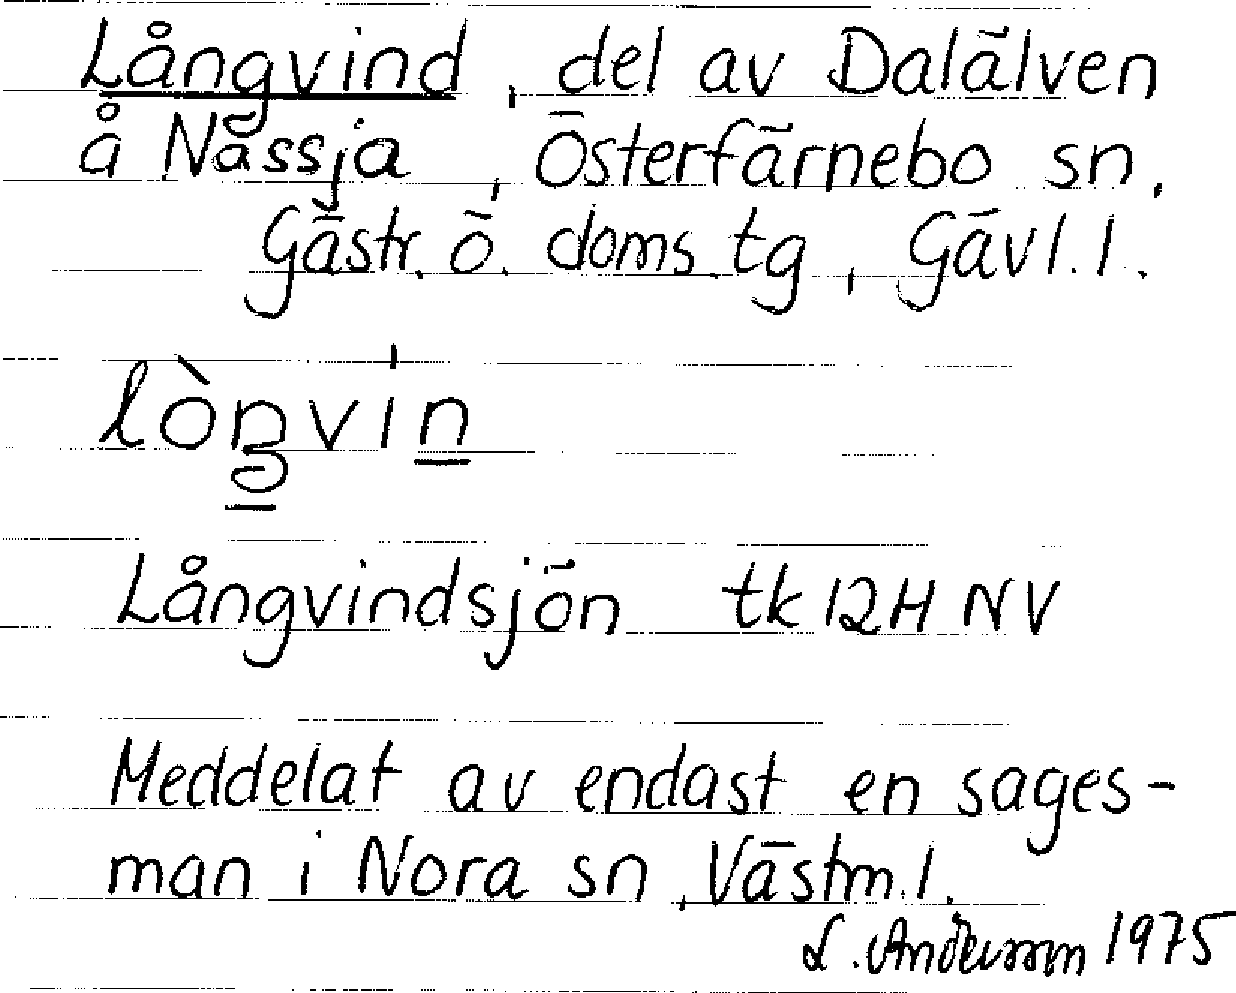 Långvind, del av Dalälven
å Nässja, Österfärnebo sn.
Gästr. ö. doms. tg, Gävl. l.
lòŋvin
Långvindsjön tk 12H NV
Meddelat av endast en sages-
man i Nora sn, Västm. l.
L. Andersson 1975